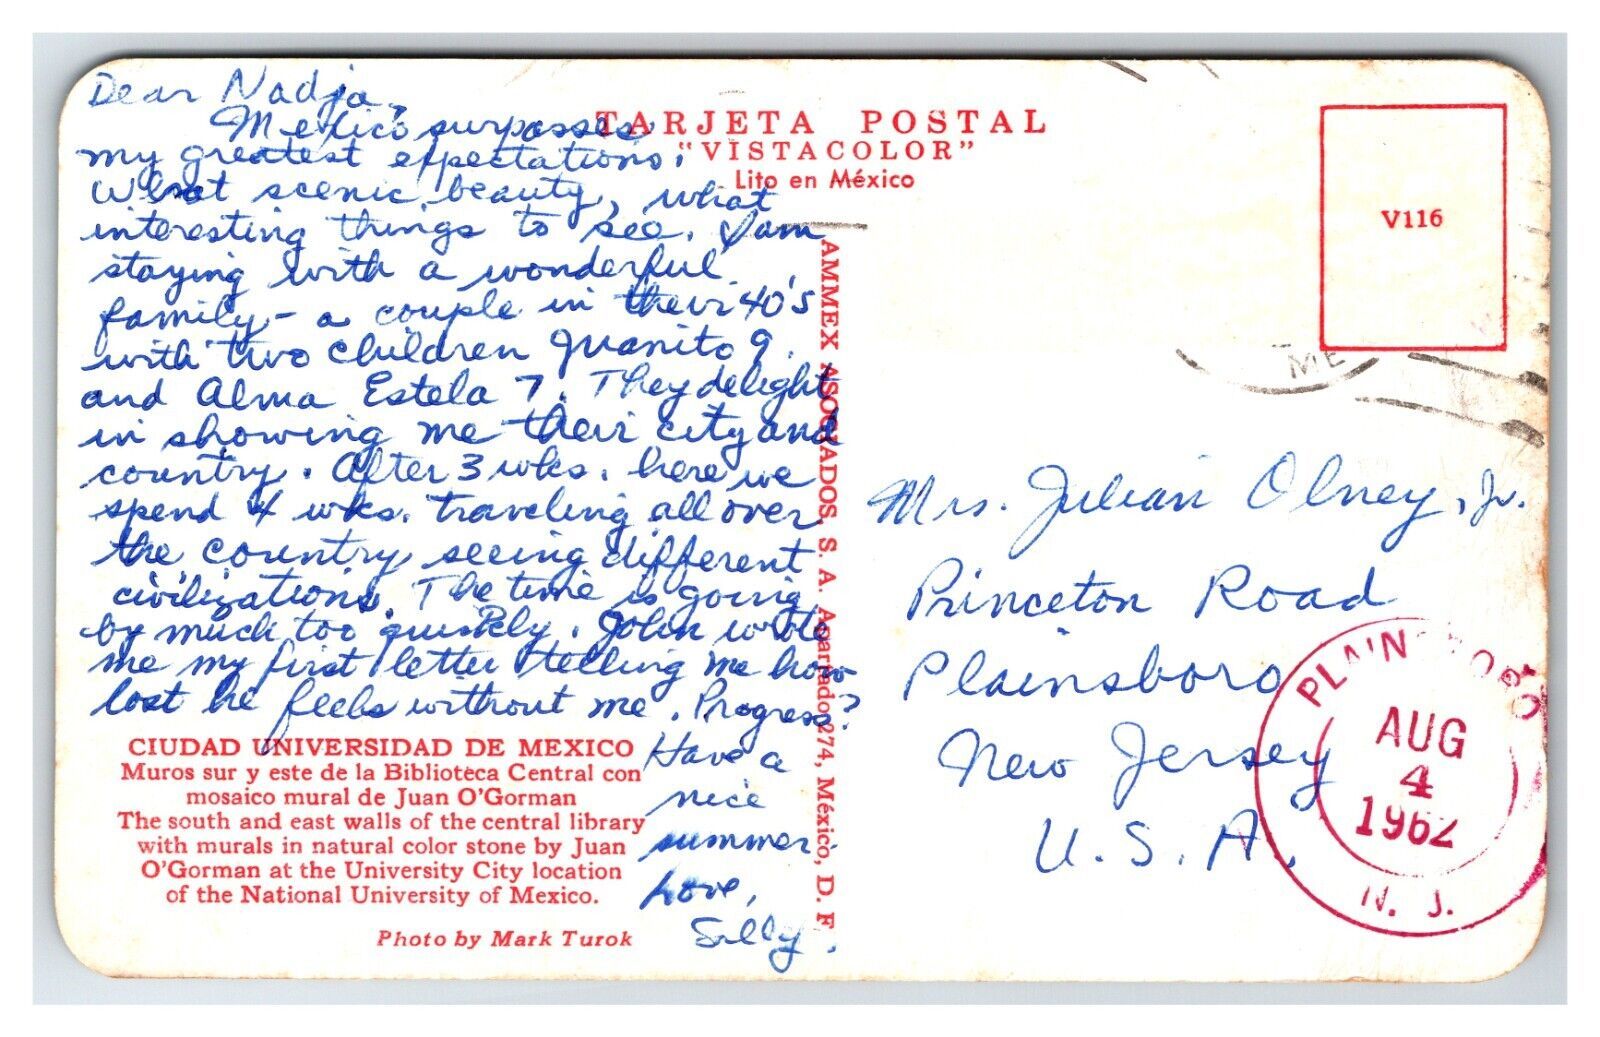 Dear Nadja,
Mexico surpasses
my greatest expectations.
What scenic beauty, what
interesting things to see. I am
staying with a wonderful
family - a couple in their 40's
with two children Juanito 9.
and Alma Estela 7. They delight
in showing me their city and
country. After 3 wks. here we
spend 4 wks. traveling all over
the country seeing different
civilizations. The time is going
by much too quickly. John wrote
me my first letter telling me how
lost he feels without me. Progress?
Have a
nice
summer.
Love,
Sally.
TARJETA POSTAL
"VISTACOLOR"
Lito en México
V116
AMMEX ASOCIADOS, S. A. Apartado 274, México, D. F.
CIUDAD UNIVERSIDAD DE MEXICO
Muros sur y este de la Biblioteca Central con
mosaico mural de Juan O'Gorman
The south and east walls of the central library
with murals in natural color stone by Juan
O'Gorman at the University City location
of the National University of Mexico.
Photo by Mark Turok
ME
Mrs. Julian Olney, Jr.
Princeton Road
Plainsboro
New Jersey
U. S. A.
AUG
4
1962
N. J.